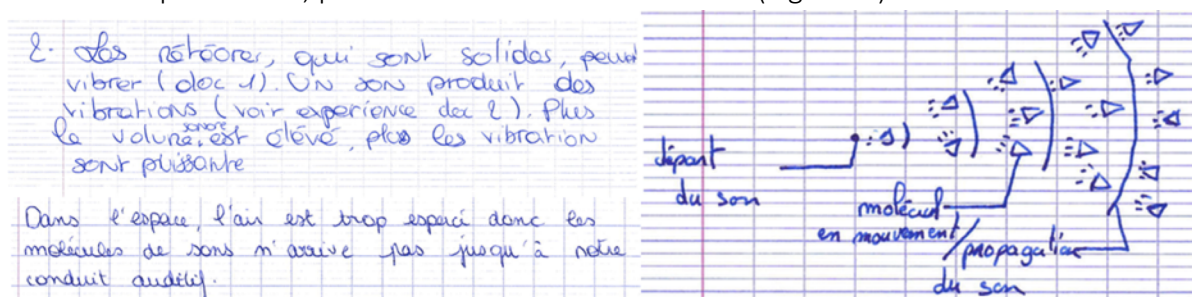 2. Les météores, qui sont solides, peuvent
vibrer (doc 1). Un son produit des
vibrations (voir experience doc 2). Plus
le volume sonore est élévé, plus les vibration
sont puissante
Dans l'espace, l'air est trop espacé donc les
molécules de sons n'arrive pas jusqu'à notre
conduit auditif.
départ
du son
molécul
en mouvement
propagation
du son